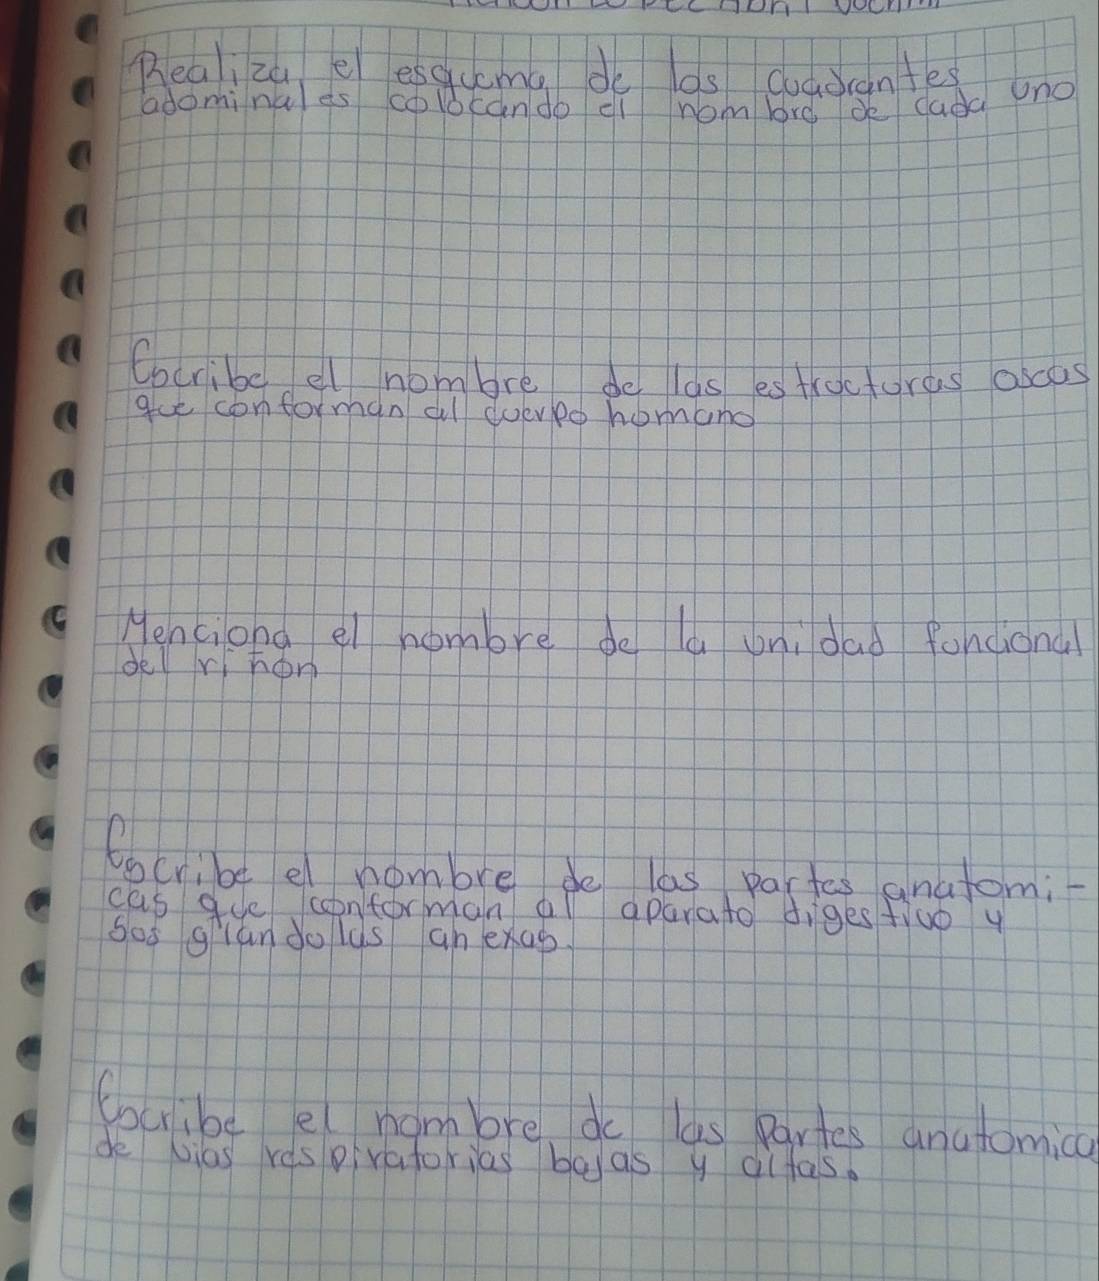 Realiza el esquema de los cuadrantes
abominales colocando el nombre de cada uno
Escribe el nombre de las estructuras oseas
que conforman al cuerpo homano
Menciona el nombre de la unidad foncional
del riñon
Escribe el nombre de las partes anatomi-
cas que conforman al aparato digestivo y
sos glandolas anexas.
Escribe el nombre de las partes anatomica
de vias respiratorias bajas y altas.